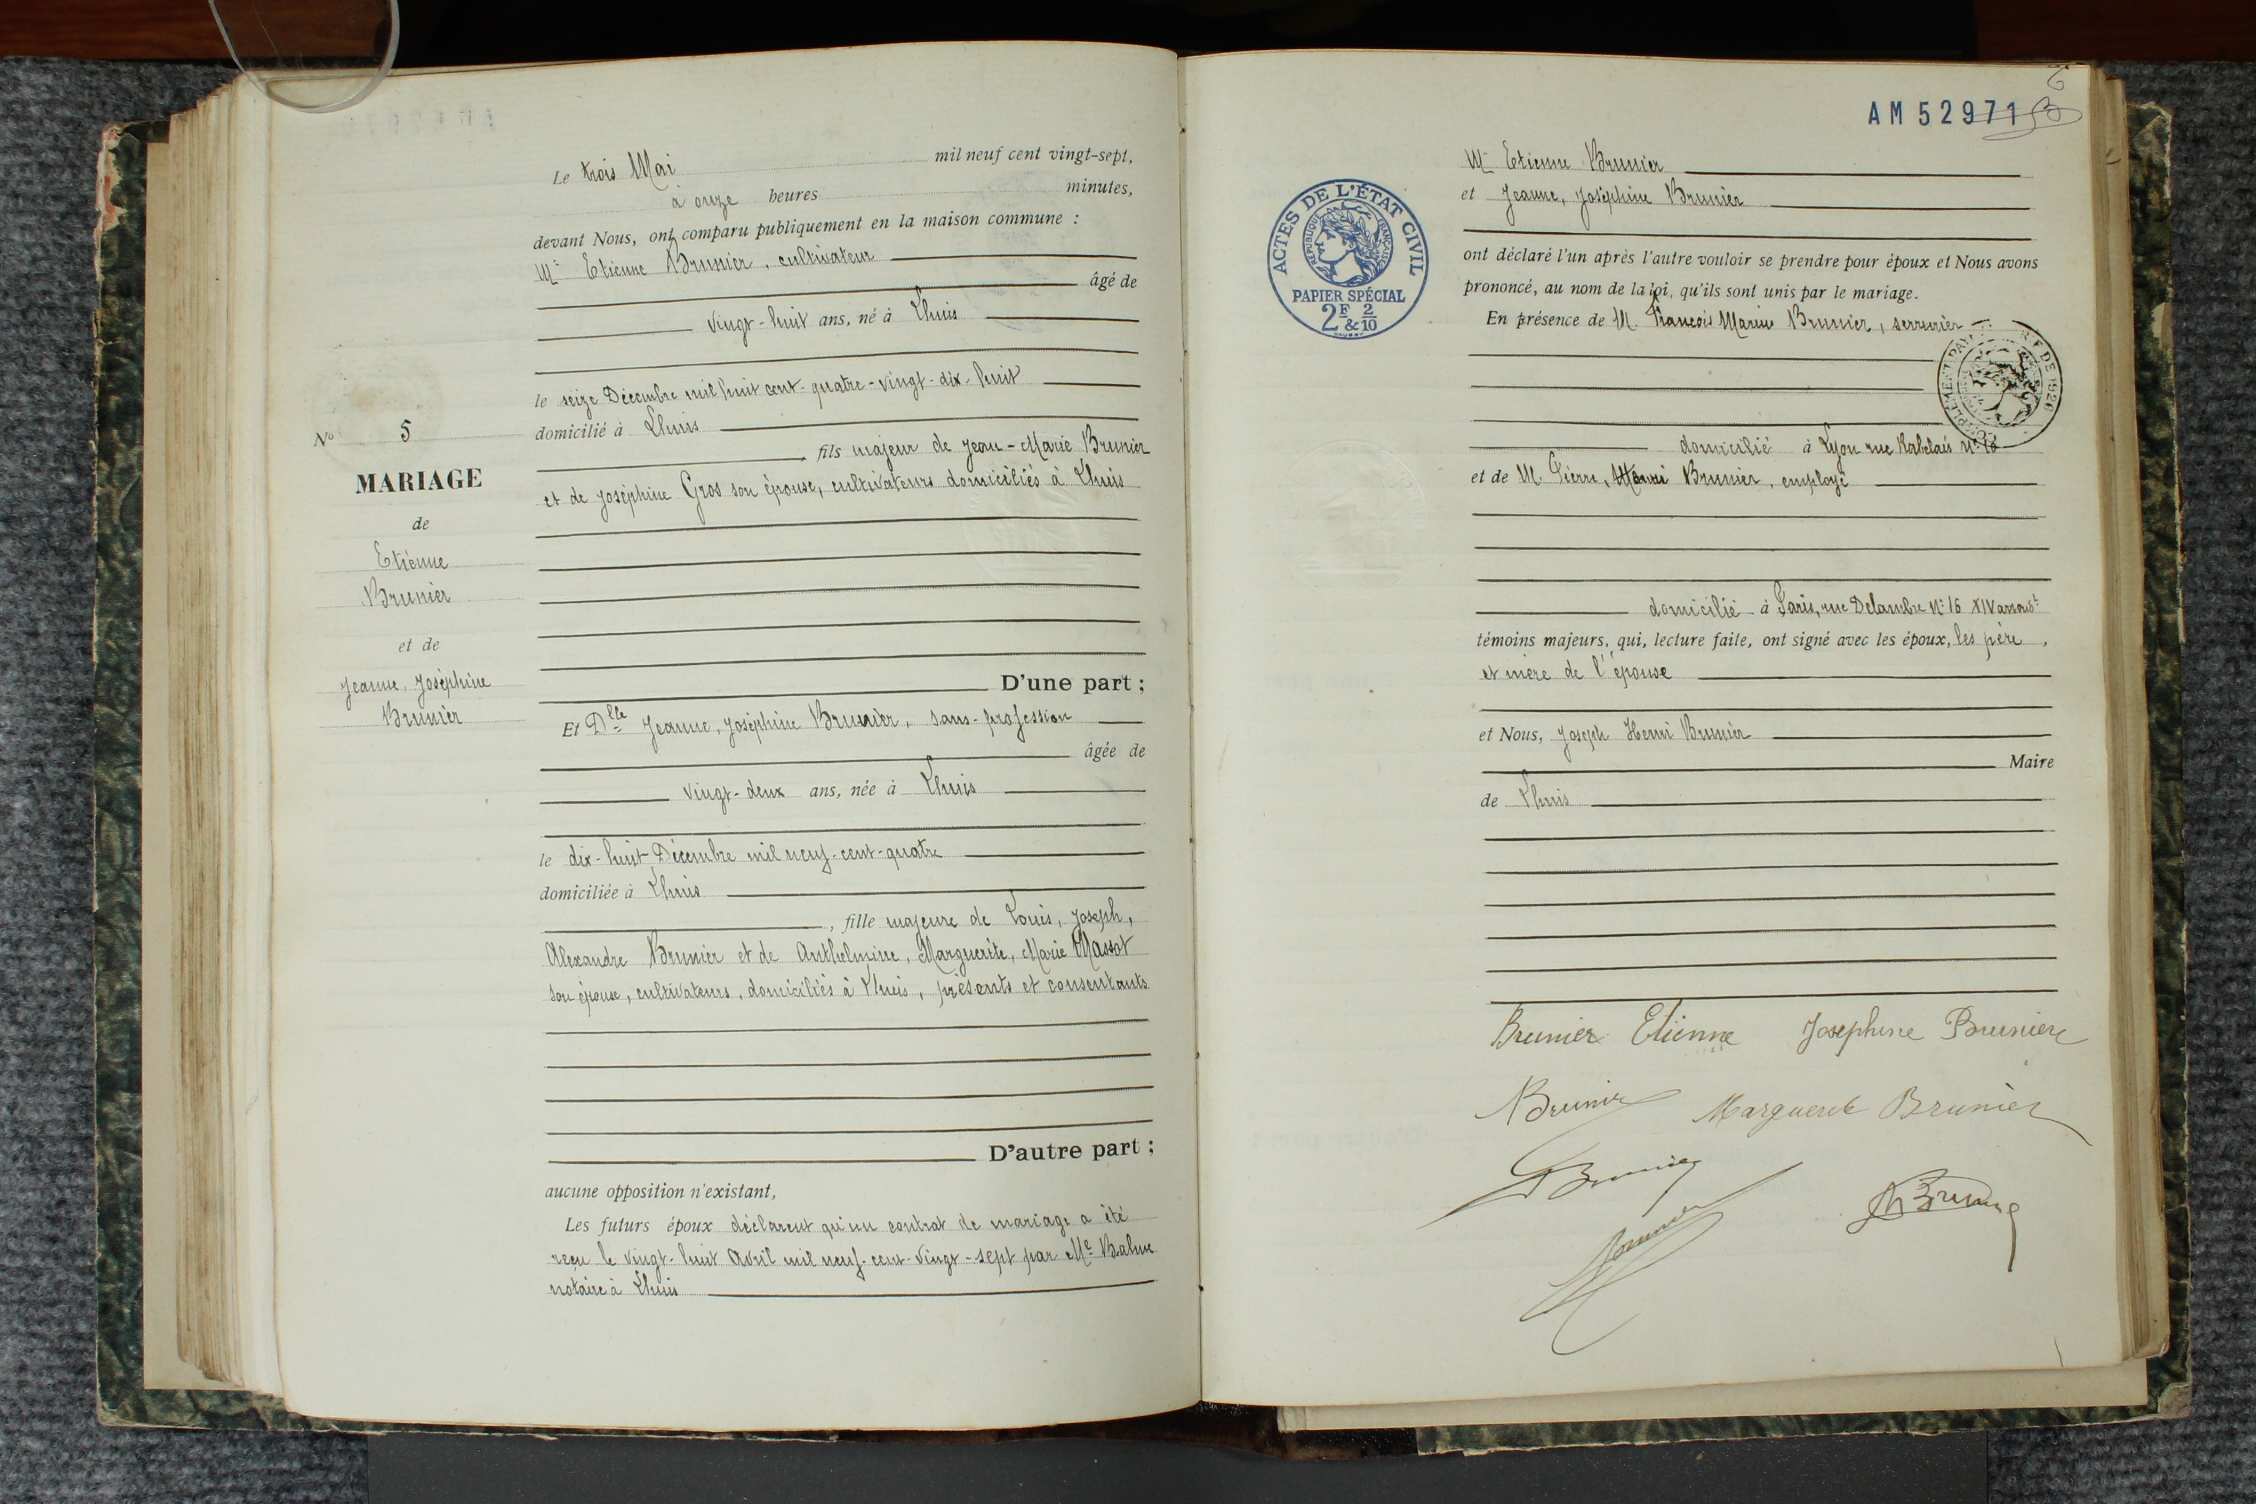 Le trois Mai mil neuf cent vingt-sept,
à onze heures minutes,
devant Nous, ont comparu publiquement en la maison commune :
Mr Etienne Brunier, cultivateur
âgé de
vingt-huit ans, né à Lhuis
le seize Décembre mil huit cent-quatre-vingt-dix-huit
domicilié à Lhuis
fils majeur de Jean-Marie Brunier
et de Joséphine Gros son épouse, cultivateurs domiciliés à Lhuis
No 5
MARIAGE
de
Etienne
Brunier
et de
Jeanne, Joséphine
Brunier
D'une part ;
Et Dlle Jeanne, Joséphine Brunier, sans-profession
âgée de
vingt-deux ans, née à Lhuis
le dix-huit Décembre mil neuf-cent-quatre
domiciliée à Lhuis
, fille majeure de Louis, Joseph,
Alexandre Brunier et de Anthelmine, Marguerite, Marie Massot
son épouse, cultivateurs, domiciliés à Lhuis, présents et consentants
D'autre part ;
aucune opposition n'existant,
Les futurs époux déclarent qu'un contrat de mariage a été
reçu le vingt-huit Avril mil neuf-cent-vingt-sept par Me Balme
notaire à Lhuis
AM 52971
6
ACTES DE L'ÉTAT CIVIL
RÉPUBLIQUE FRANÇAISE
PAPIER SPÉCIAL
2F & 2/10
Mr Etienne Brunier
et Jeanne, Joséphine Brunier
ont déclaré l'un après l'autre vouloir se prendre pour époux et Nous avons
prononcé, au nom de la loi, qu'ils sont unis par le mariage.
En présence de M. François Marius Brunier, serrurier
domicilié à Lyon rue Rabelais No 18
et de M. Pierre, Henri Brunier, employé
domicilié à Paris, rue Delambre No 16 XIV arrondt
témoins majeurs, qui, lecture faite, ont signé avec les époux, les père,
et mère de l'épouse
et Nous, Joseph Henri Brunier
Maire
de Lhuis
Brunier Etienne Josephine Brunier
Brunier Marguerite Brunier
Brunier
Brunier